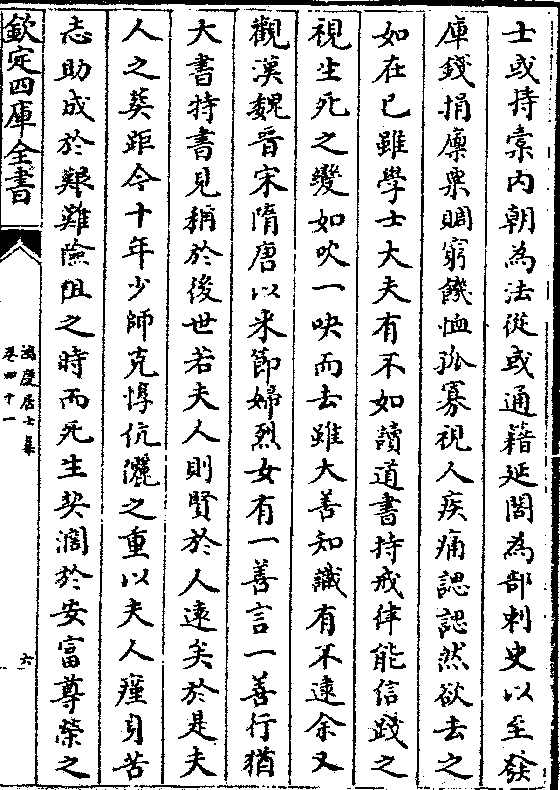 士或持橐内朝為法從或通籍延閣為部刺史以至發
庫錢捐廪粟賙窮餓恤孤寡視人疾痛諰諰然欲去之
如在己雖學士大夫有不如讀道書持戒律能信踐之
視生死之變如吹一吷而去雖大善知識有不逮余又
觀漢魏晉宋隋唐以來節婦烈女有一善言一善行猶
大書特書見稱於後世若夫人則賢於人逺矣於是夫
人之葬距今十年少師克惇伉儷之重以夫人瘽身苦
志助成於艱難險阻之時而死生契濶於安富尊榮之
欽定四庫全書
鴻慶居士集
卷四十一
六